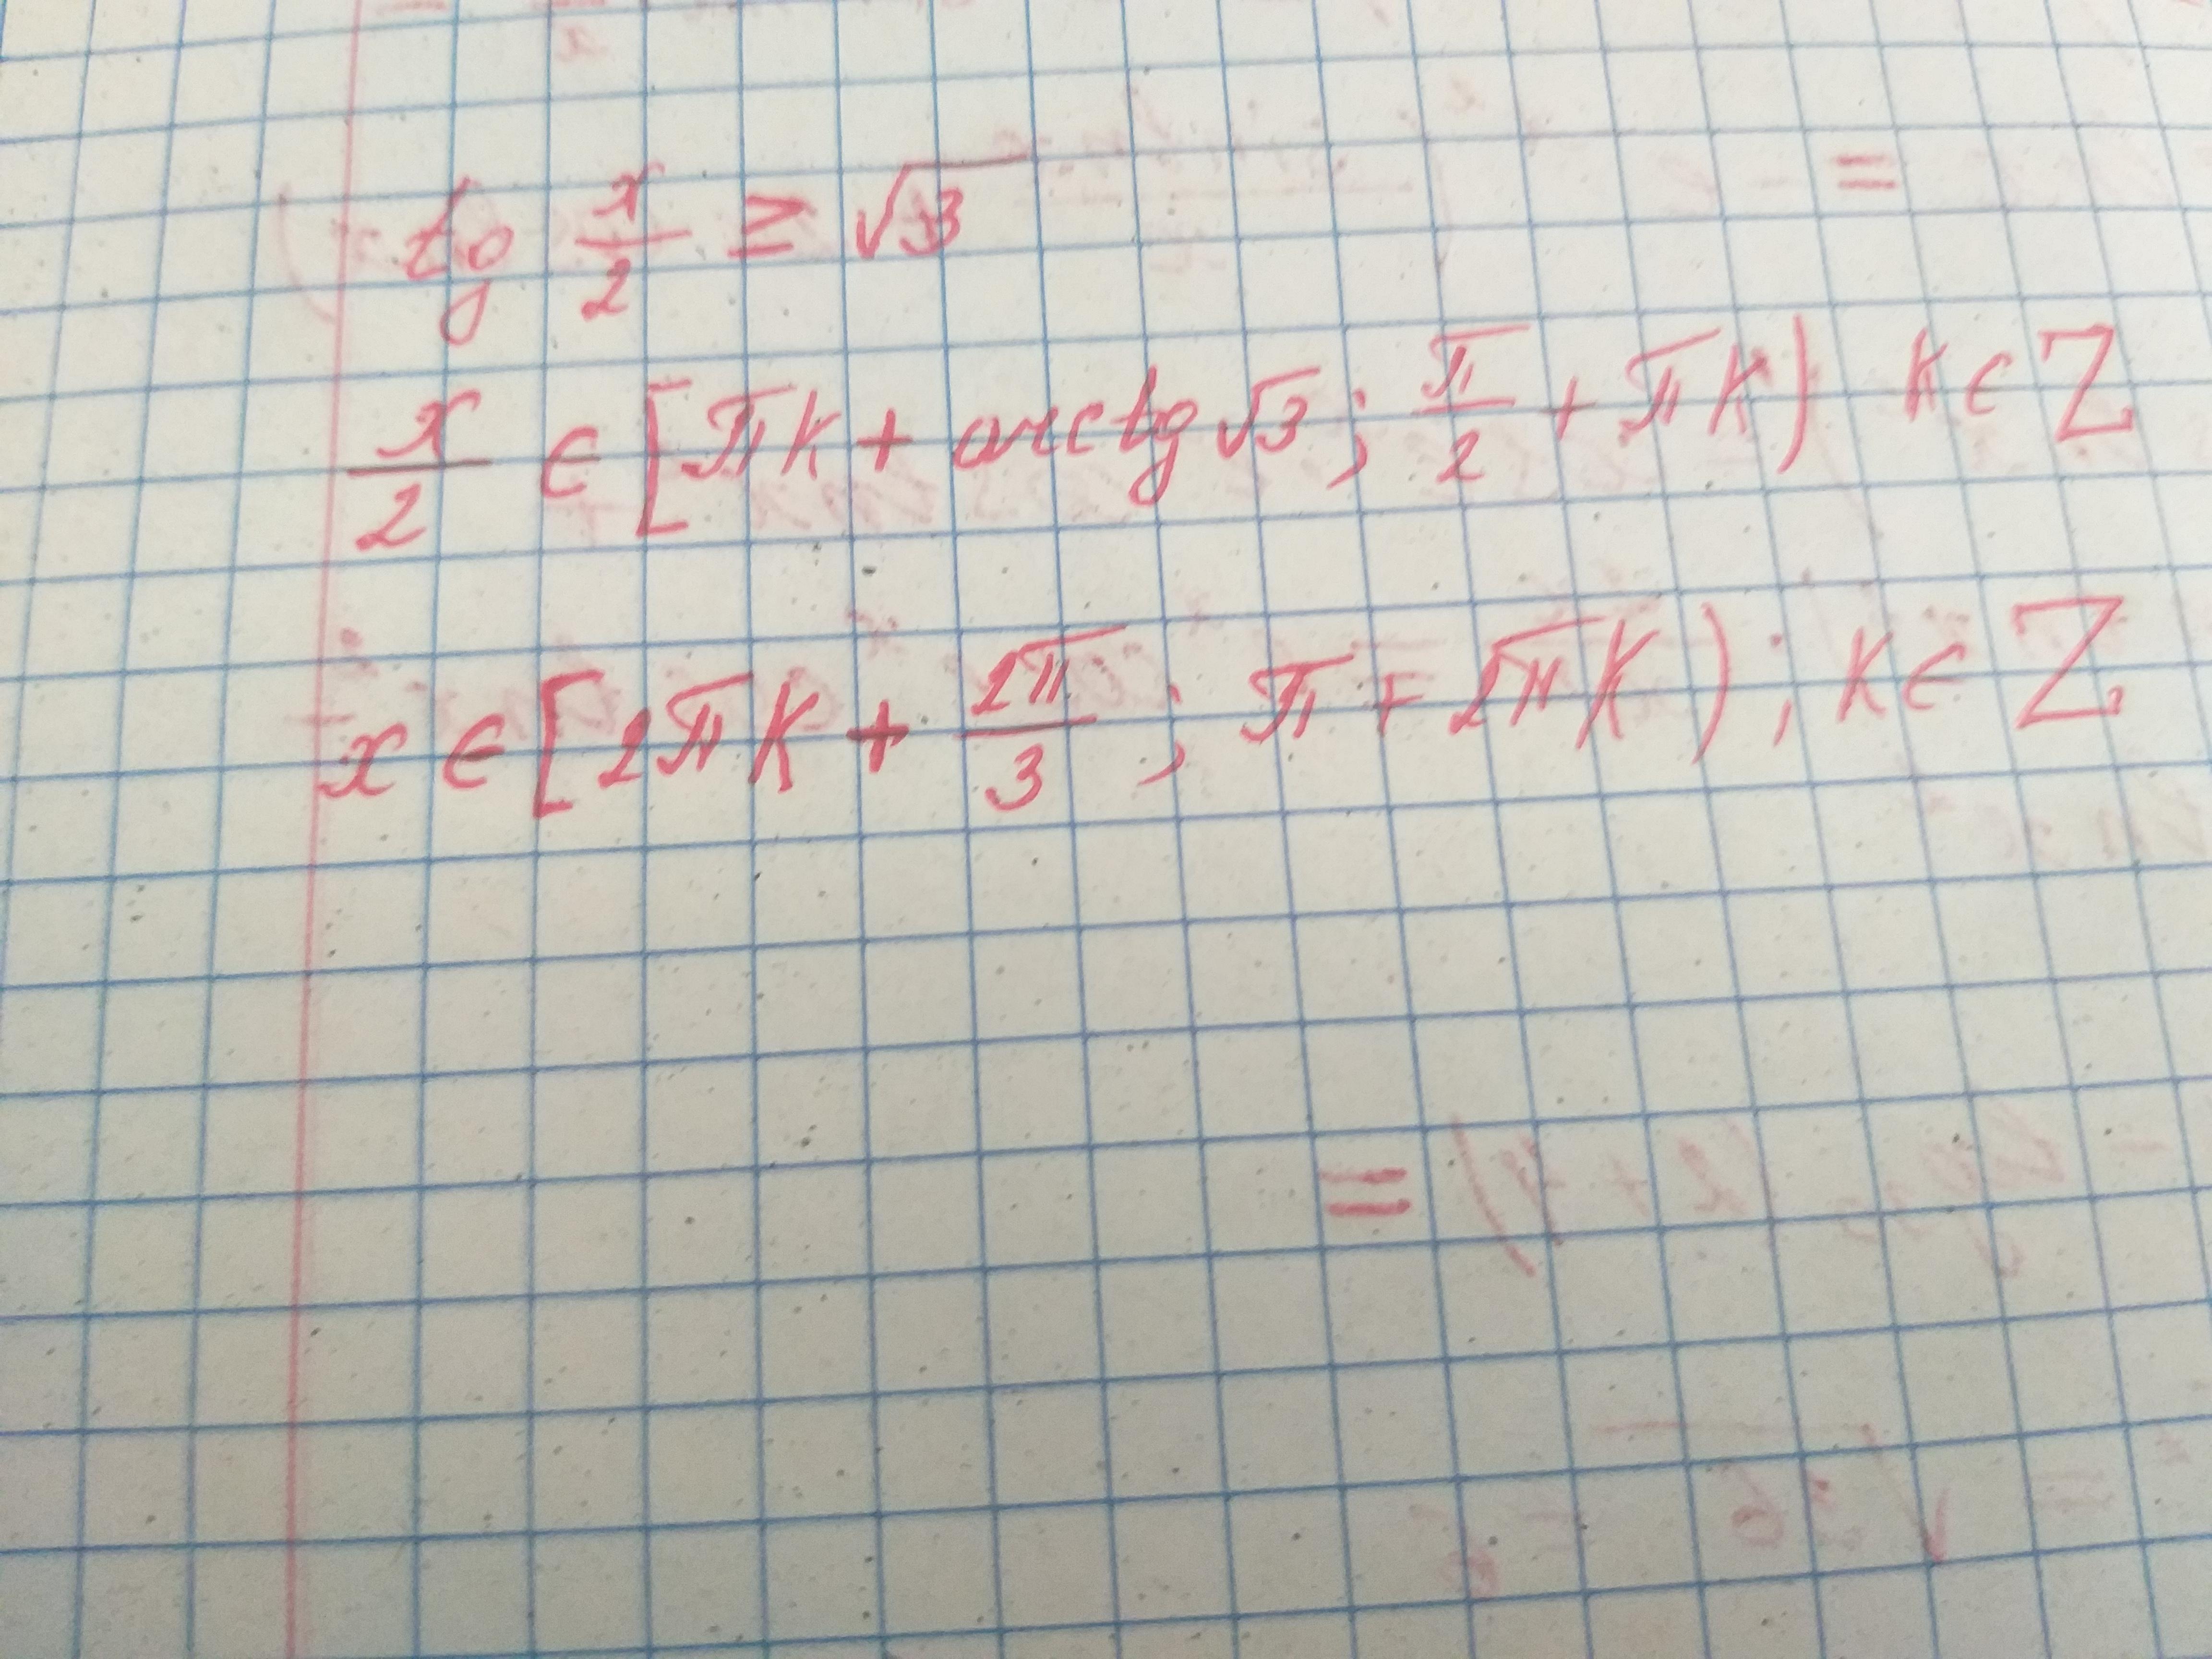 tg x/2 ≥ √3
x/2 ∈ [πk + arctg √3; π/2 + πk) k ∈ Z
x ∈ [2πk + 2π/3; π + 2πk); k ∈ Z